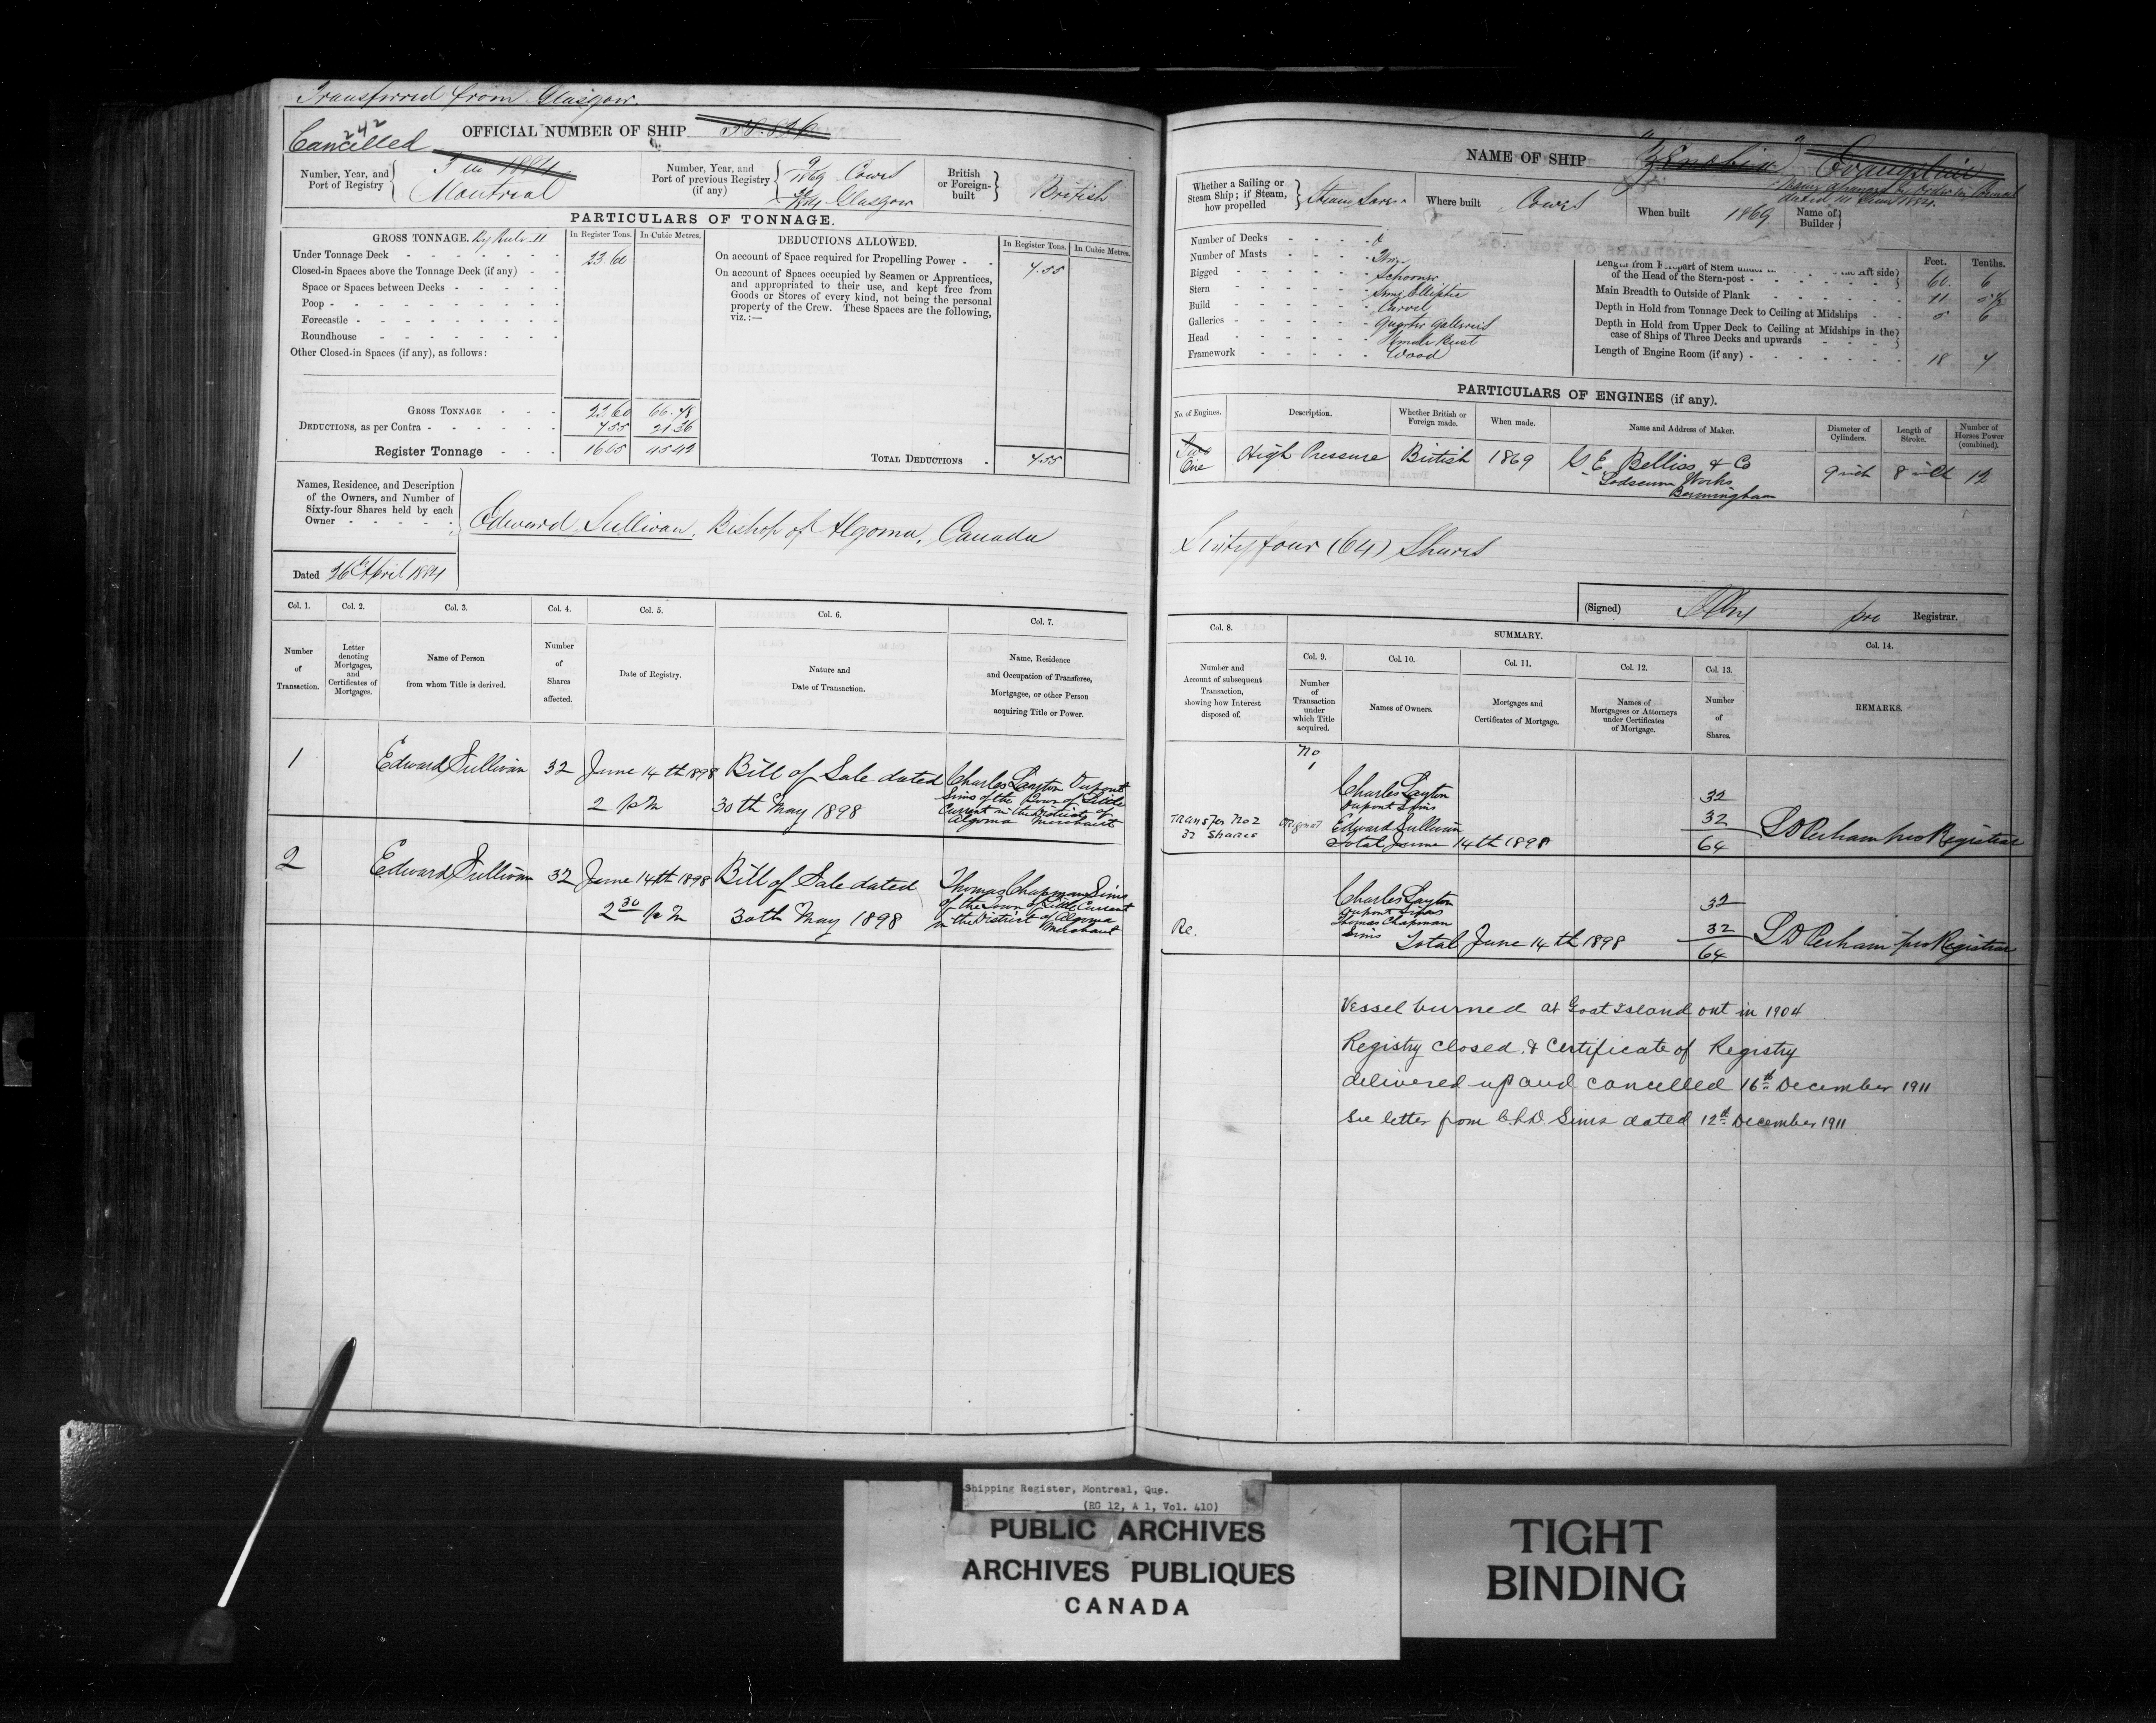 Transferred from Glasgow.
242
Cancelled
OFFICIAL NUMBER OF SHIP 58.826
Number, Year, and Port of Registry
1884
Montreal
Number, Year, and Port of previous Registry (if any)
9/1869 Cowes
Glasgow
British or Foreign-built
British
PARTICULARS OF TONNAGE.
GROSS TONNAGE. By Rule II
In Register Tons. In Cubic Metres.
Under Tonnage Deck 23.60
Closed-in Spaces above the Tonnage Deck (if any)
Space or Spaces between Decks
Poop
Forecastle
Roundhouse
Other Closed-in Spaces (if any), as follows:
GROSS TONNAGE 23.60 66.78
DEDUCTIONS, as per Contra 7.55 21.36
Register Tonnage 16.05 45.42
DEDUCTIONS ALLOWED.
In Register Tons. In Cubic Metres.
On account of Space required for Propelling Power 7.55
On account of Spaces occupied by Seamen or Apprentices,
and appropriated to their use, and kept free from
Goods or Stores of every kind, not being the personal
property of the Crew. These Spaces are the following,
viz.:—
TOTAL DEDUCTIONS 7.55
Names, Residence, and Description
of the Owners, and Number of
Sixty-four Shares held by each
Owner
Edward Sullivan, Bishop of Algoma, Canada
Dated 26th April 1884
Col. 1. Col. 2. Col. 3. Col. 4. Col. 5. Col. 6. Col. 7.
Number of Transaction.
Letter denoting Mortgages, and Certificates of Mortgages.
Name of Person from whom Title is derived.
Number of Shares affected.
Date of Registry.
Nature and Date of Transaction.
Name, Residence and Occupation of Transferee, Mortgagee, or other Person acquiring Title or Power.
1 Edward Sullivan 32 June 14th 1898 Bill of Sale dated Charles Layton Dupont
2 pm 30th May 1898 Sims of the Town of Little
Current in the District of
Algoma Merchant
2 Edward Sullivan 32 June 14th 1898 Bill of Sale dated Thomas Chapman Sims
2 30 pm 30th May 1898 of the Town of Little Current
in the District of Algoma
Merchant
NAME OF SHIP "Zenobia" Evangeline
Name changed by Order in Council
Whether a Sailing or Steam Ship; if Steam, how propelled
Steam Screw
Where built Cowes
When built 1869
Name of Builder
Number of Decks
Number of Masts
Rigged Schooner
Stern Semi Elliptic
Build Carvel
Galleries Quarter Galleries
Head Female Bust
Framework Wood
Feet. Tenths.
of the Head of the Stern-post 60. 6
Main Breadth to Outside of Plank 11
Depth in Hold from Tonnage Deck to Ceiling at Midships 5 6
Depth in Hold from Upper Deck to Ceiling at Midships in the
case of Ships of Three Decks and upwards
Length of Engine Room (if any) 18 4
PARTICULARS OF ENGINES (if any).
No. of Engines. Description. Whether British or Foreign made. When made. Name and Address of Maker. Diameter of Cylinders. Length of Stroke. Number of Horses Power (combined).
Two
One High Pressure British 1869 G E Belliss & Co 9 inch 8 inch 12
Works
Birmingham
Sixty four (64) Shares
(Signed) pro Registrar.
Col. 8. SUMMARY. Col. 14.
Col. 9. Col. 10. Col. 11. Col. 12. Col. 13.
Number and Account of subsequent Transaction, showing how Interest disposed of.
Number of Transaction under which Title acquired.
Names of Owners.
Mortgages and Certificates of Mortgage.
Names of Mortgagees or Attorneys under Certificates of Mortgage.
Number of Shares.
REMARKS.
No
1 Charles Layton
Dupont Sims 32
Transfer No 2 Original Edward Sullivan 32
32 Shares Total June 14th 1898 64 L D Perham pro Registrar
Charles Layton
Dupont Sims 32
Thomas Chapman
Re. Sims 32
Total June 14th 1898 64 L D Perham pro Registrar
Vessel burned at Goat Island out in 1904
Registry closed & Certificate of Registry
delivered up and cancelled 16th December 1911
See letter from C.L.D. Sims dated 12th December 1911
Shipping Register, Montreal, Que.
(RG 12, A 1, Vol. 410)
PUBLIC ARCHIVES
ARCHIVES PUBLIQUES
CANADA
TIGHT
BINDING